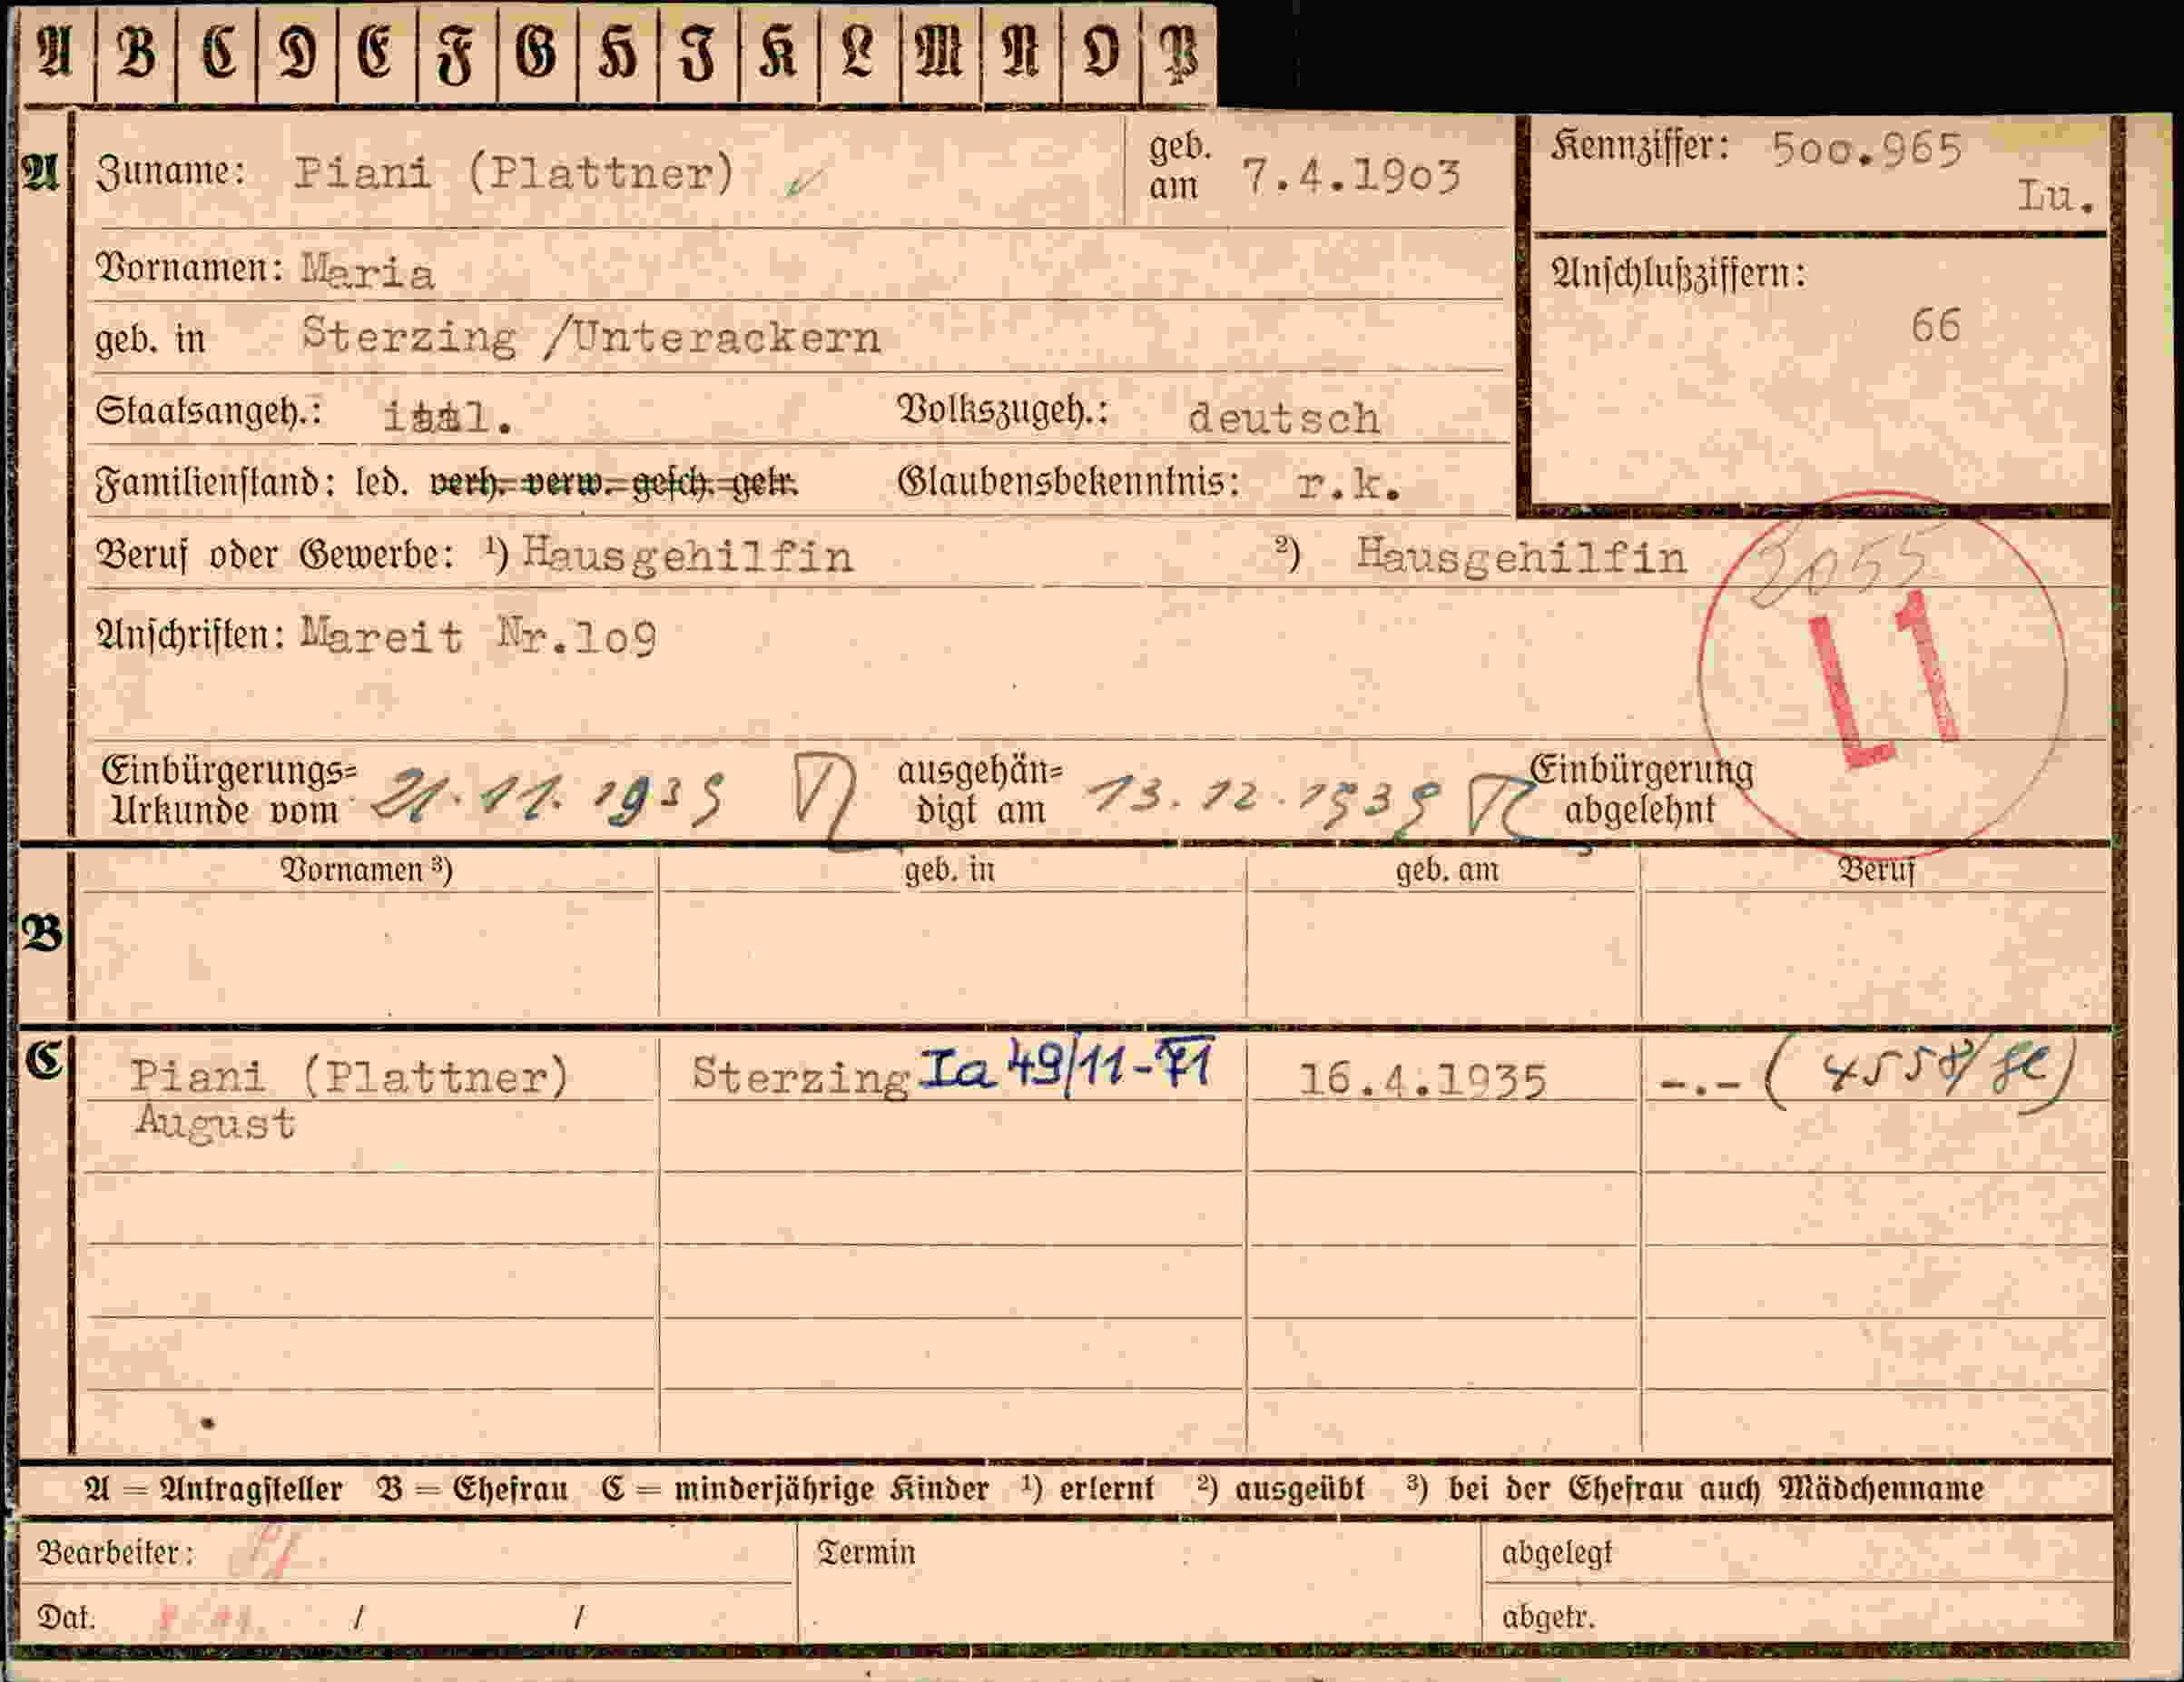 A B C D E F G H J K L M N O P
A Zuname: Piani (Plattner) geb. am 7.4.19o3 Kennziffer: 5oo.965
Lu.
Vornamen: Maria Anschlußziffern:
66
geb. in Sterzing /Unterackern
Staatsangeh.: ital. Volkszugeh.: deutsch
Familienstand: led. verh. verw. gesch. getr. Glaubensbekenntnis: r.k.
Beruf oder Gewerbe: ¹) Hausgehilfin ²) Hausgehilfin
L1
Anschriften: Mareit Nr.1o9
Einbürgerungs=
Urkunde vom 21.11.1939 ausgehän=
digt am 13.12.1939 Einbürgerung
abgelehnt
Vornamen ³) geb. in geb. am Beruf
B
C Piani (Plattner) Sterzing Ia 49/11-71 16.4.1935 -.-
August
A = Antragsteller B = Ehefrau C = minderjährige Kinder ¹) erlernt ²) ausgeübt ³) bei der Ehefrau auch Mädchenname
Bearbeiter: Termin abgelegt
Dat. / / abgetr.